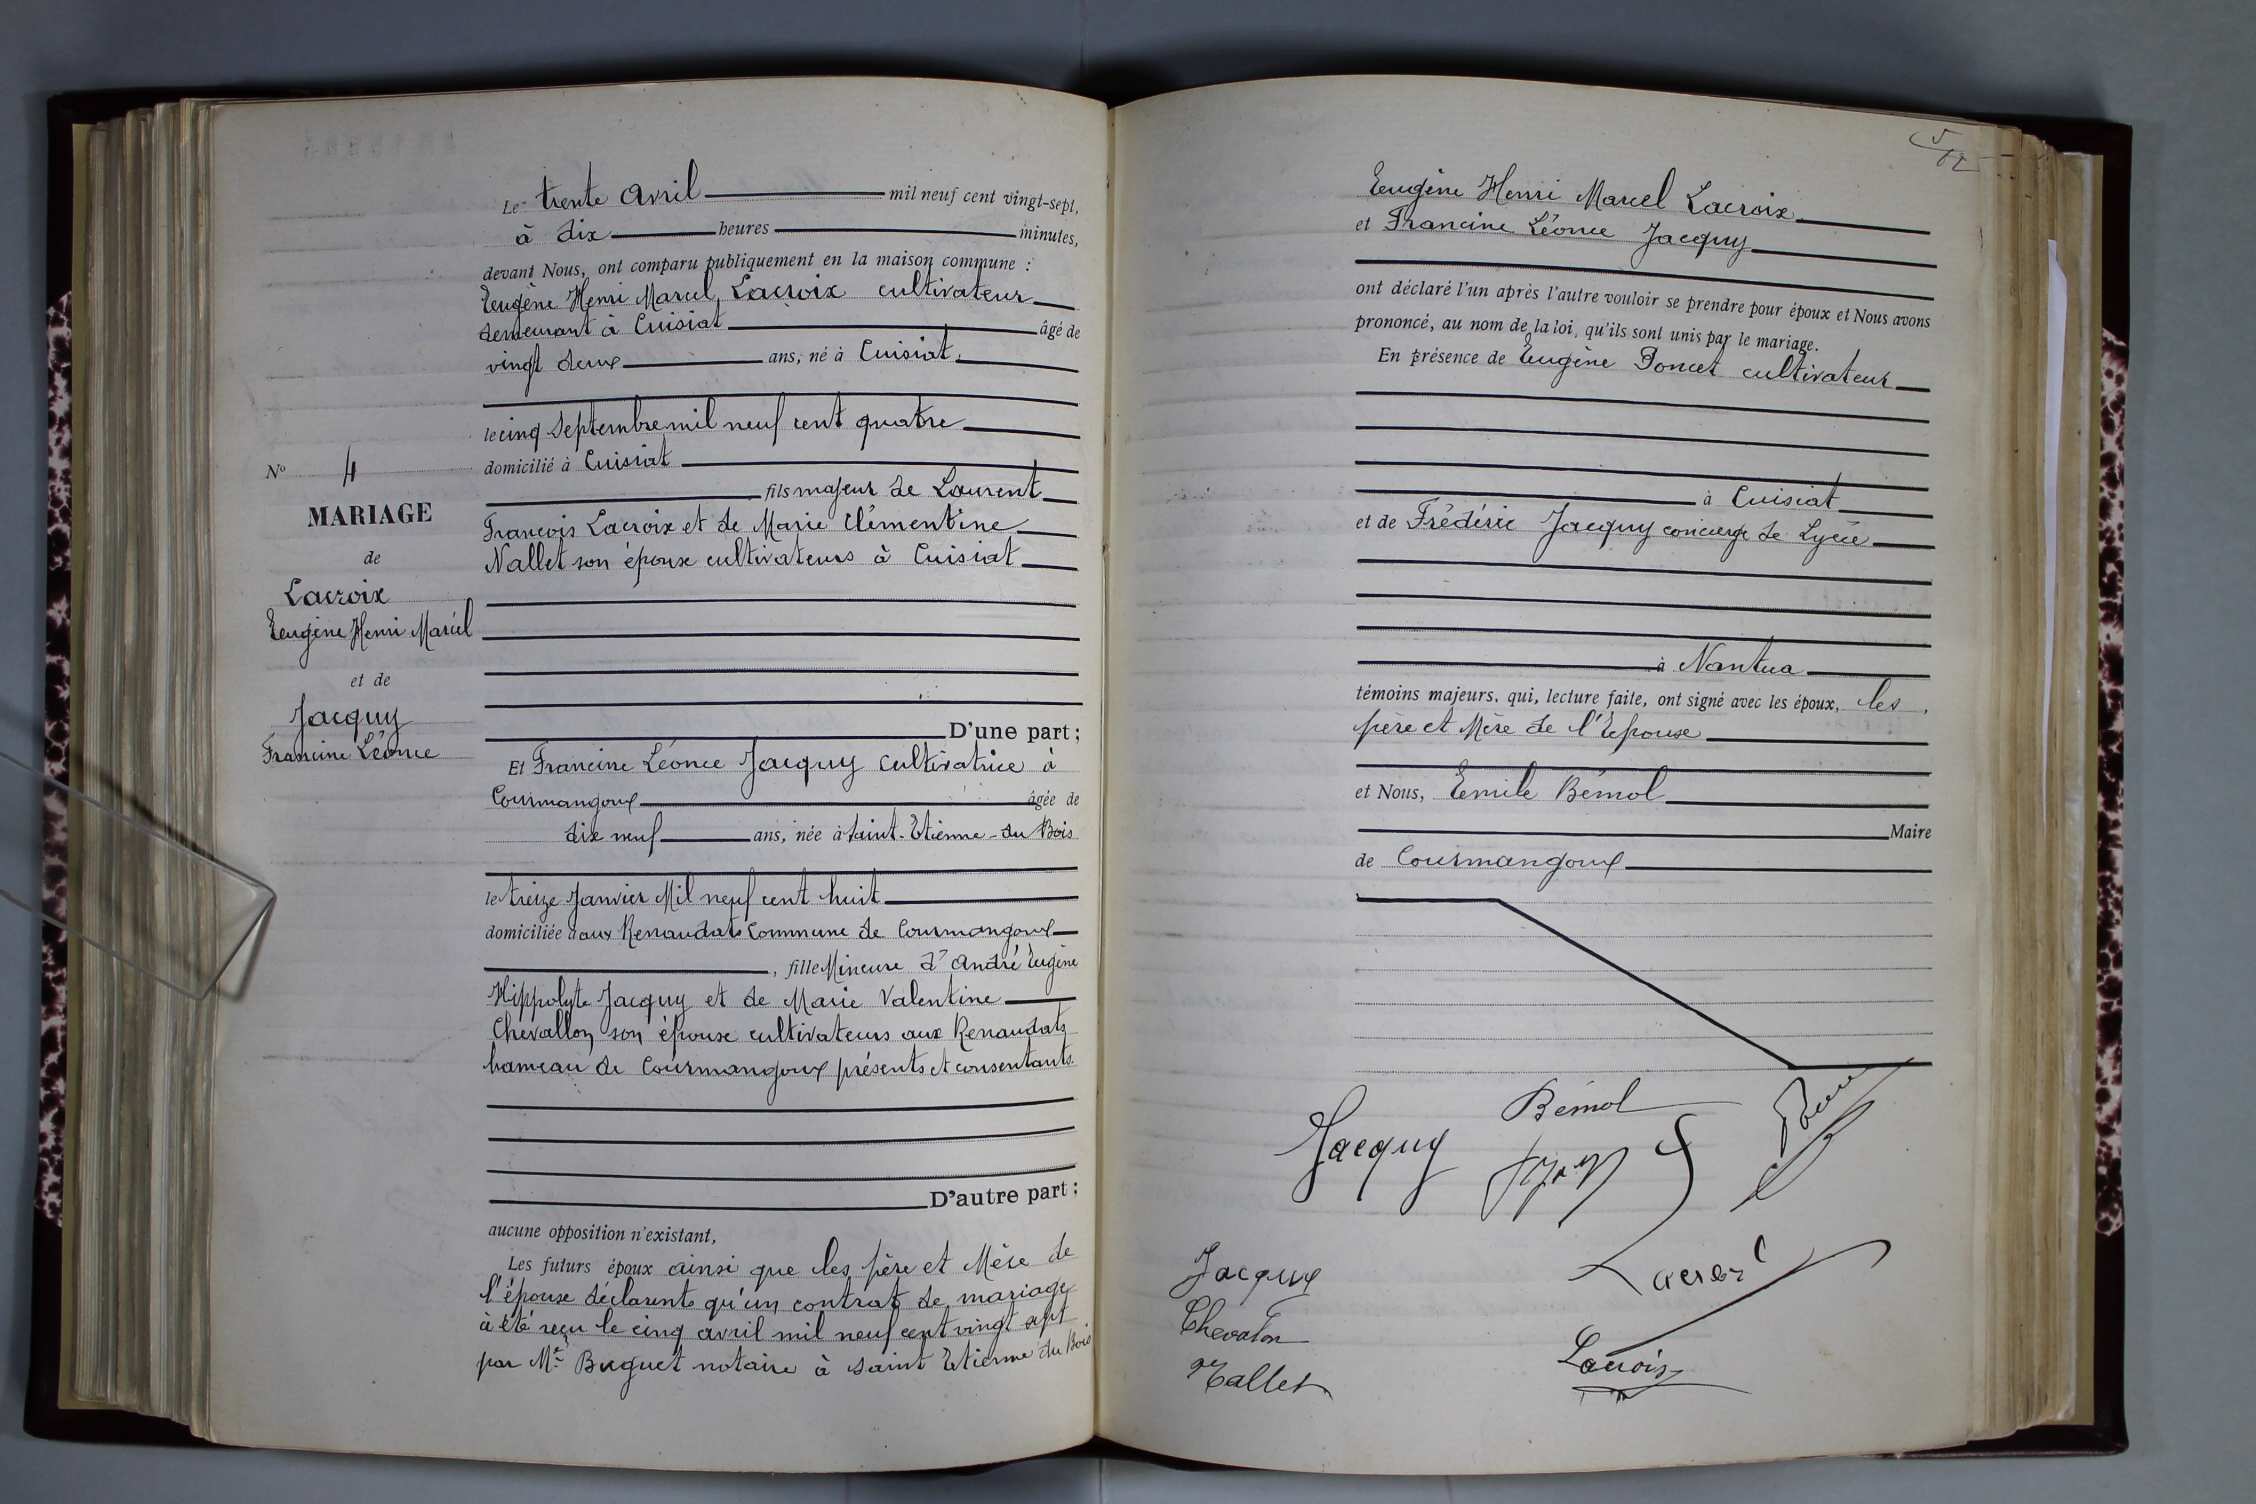 Le trente avril mil neuf cent vingt-sept,
à dix heures minutes,
devant Nous, ont comparu publiquement en la maison commune :
Eugène Henri Marcel Lacroix cultivateur
demeurant à Cuisiat âgé de
vingt deux ans, né à Cuisiat
le cinq Septembre mil neuf cent quatre
domicilié à Cuisiat
fils majeur de Laurent
François Lacroix et de Marie Clémentine
Nallet son épouse cultivateurs à Cuisiat
D'une part ;
Et Francine Léonce Jacquy cultivatrice à
Courmangoux âgée de
dix neuf ans, née à Saint-Etienne-du Bois
le treize Janvier Mil neuf cent huit
domiciliée aux Renaudats Commune de Courmangoux
, fille Mineure d'André Eugène
Hippolyte Jacquy et de Marie Valentine
Chevallon son épouse cultivateurs aux Renaudats
hameau de Courmangoux présents et consentants.
D'autre part ;
aucune opposition n'existant,
Les futurs époux ainsi que les père et Mère de
l'épouse déclarent qu'un contrat de mariage
à été reçu le cinq avril mil neuf cent vingt sept
par Me Buguet notaire à Saint Etienne du Bois
No 4
MARIAGE
de
Lacroix
Eugène Henri Marcel
et de
Jacquy
Francine Léonce
Eugène Henri Marcel Lacroix
et Francine Léonce Jacquy
ont déclaré l'un après l'autre vouloir se prendre pour époux et Nous avons
prononcé, au nom de la loi, qu'ils sont unis par le mariage.
En présence de Eugène Poncet cultivateur
à Cuisiat
et de Frédéric Jacquy concierge de Lycée
à Nantua
témoins majeurs, qui, lecture faite, ont signé avec les époux, les
père et Mère de l'Epouse
et Nous, Emile Bémol
Maire
de Courmangoux
Bémol
Jacquy
Jacquy
Chevalon
Nallet
Lacroix
Lacroix